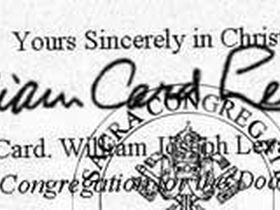 Yours Sincerely in Christ
liam Card Le
SACRA CONGREGA
Card. William Joseph Leva
Congregation for the Do